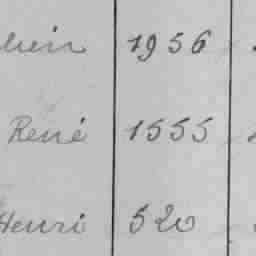 1956
René 1555
Henri 520